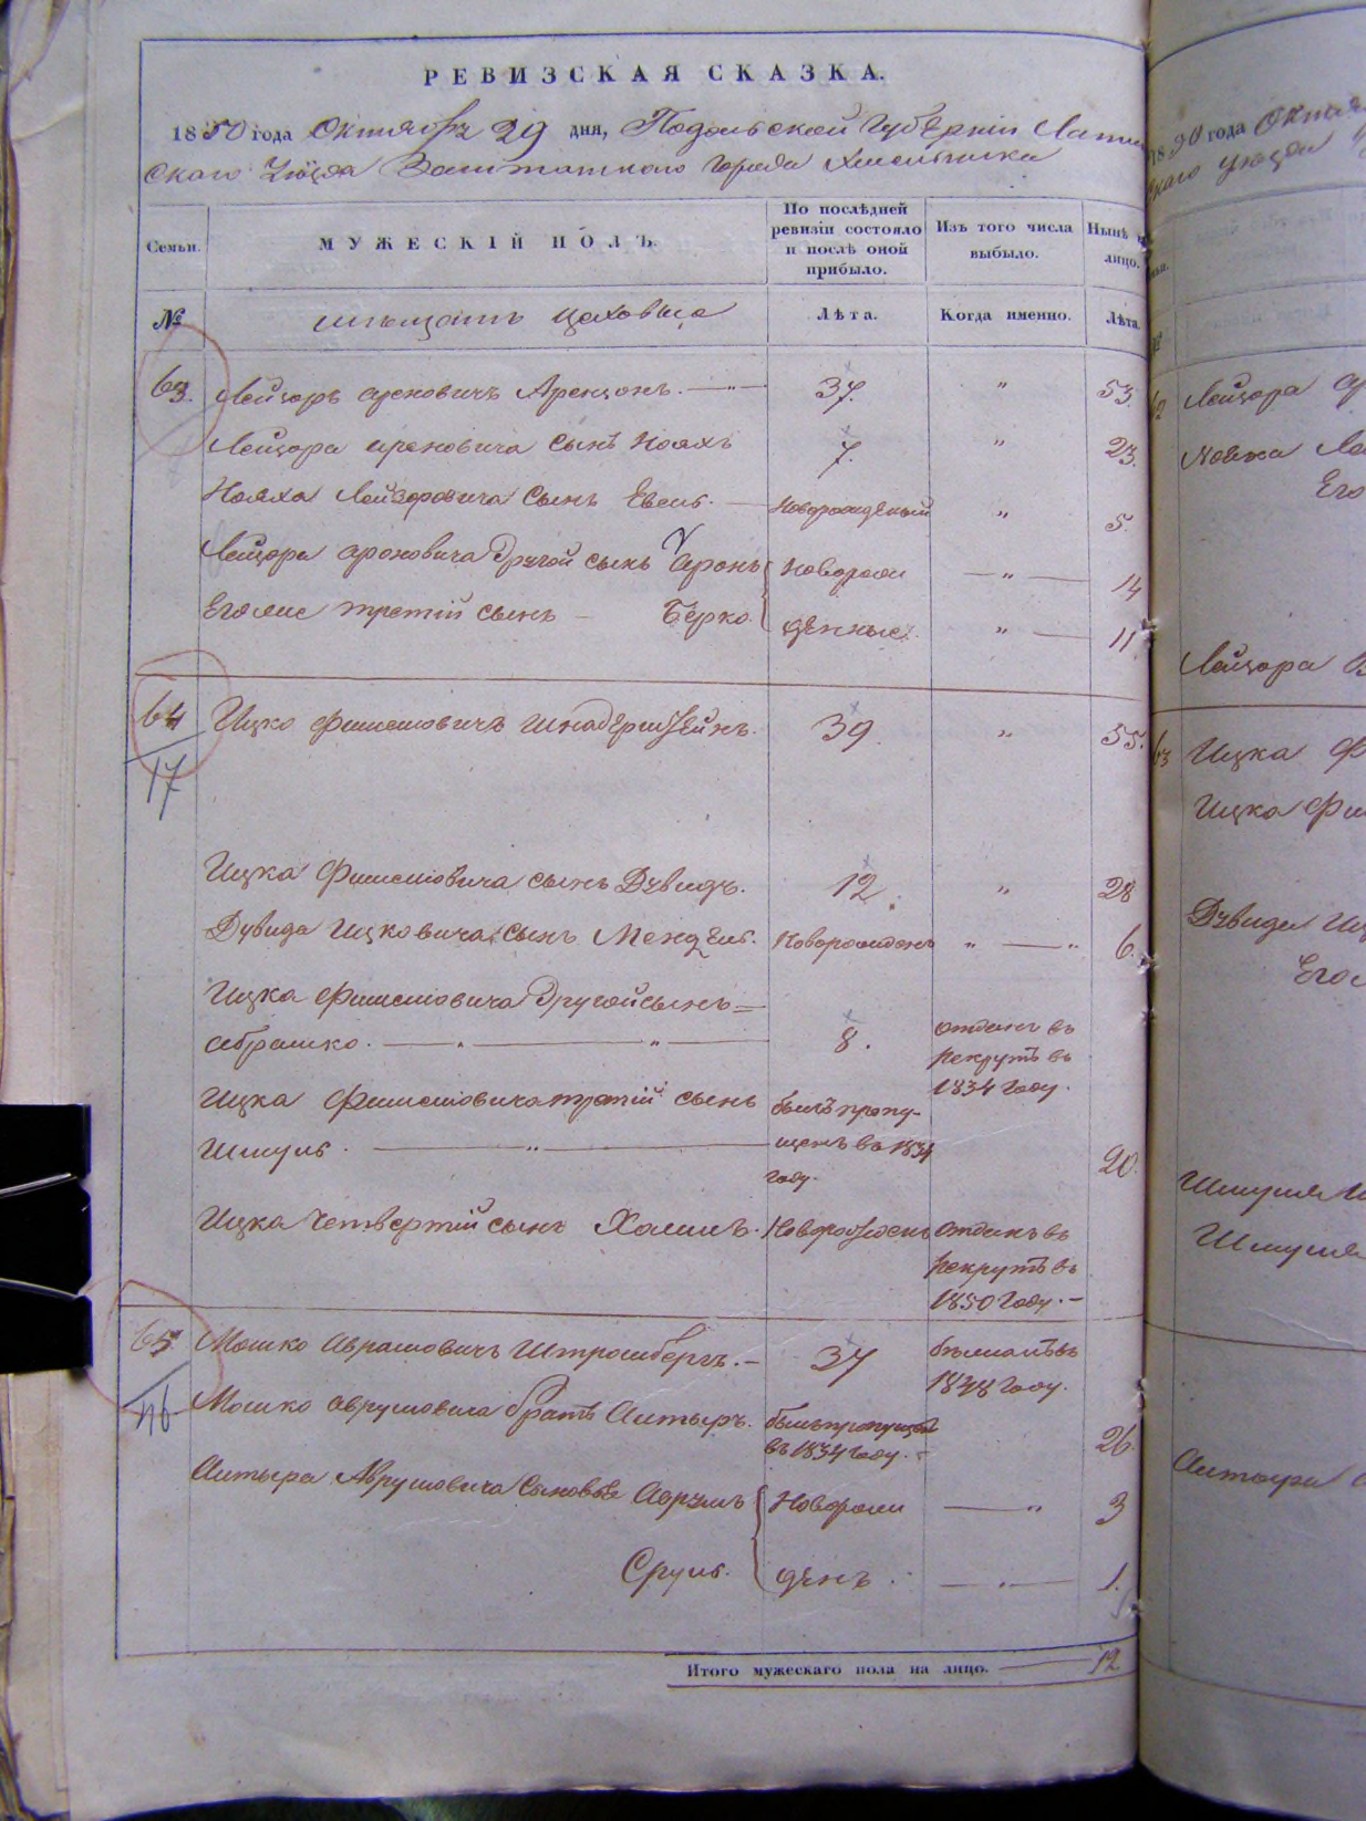 РЕВИЗСКАЯ СКАЗКА.
1850 года Октября 29 дня, Подольской Губерніи Лати
скаго Уѣзда Заштатнаго города Хмельника
Семьи.
МУЖЕСКІЙ ПОЛЪ.
По послѣдней ревизіи состояло и послѣ оной прибыло.
Изъ того числа выбыло.
Нынѣ на лицо.
№
мѣщанъ цеховые
Лѣта.
Когда именно.
Лѣта.
63.
Лейзоръ Ароновичъ Аренцонъ. — 37. " 53.
Лейзора Ароновича сынъ Нояхъ 7. " 23.
Нояха Лейзоровича сынъ Евель. — Новорожденый " 5.
Лейзора Ароновича другой сынъ Аронъ Новорож — " — 14
Его же третій сынъ — Берко. денные. " — 11
64
17
Ицко Фишелювичъ Шнадерштейнъ. 39. " 55.
Ицка Фишелювича сынъ Дувидъ. 12. " 28
Дувида Ицковича сынъ Мендель. Новорожденъ " — " 6.
Ицка Фишелювича другой сынъ =
Абрамко. — " — " — 8. отданъ въ рекруты въ 1834 году.
Ицка Фишелювича третій сынъ
Шмуль. — " — былъ пропущенъ въ 1834 году. 20.
Ицка четвертій сынъ Хаимъ. Новорожденъ отданъ въ рекруты въ 1850 году. —
65
116
Мошко Аврамовичъ Штромбергъ. — 37 въ 1848 году.
Мошко Аврумовича братъ Альтыръ. былъ пропущенъ въ 1834 году. — 26.
Альтыра Аврумовича сыновье Аврумъ Новорож — " 3
Сруль. денъ. — " — 1.
Итого мужескаго пола на лицо. — 12
1850 года Октяб
скаго уѣзда
62
Лейзора
Его
Лейзора
63
Ицка Ф
Ицка Фи
Дувида Иц
Его
Шмуля
Шмуля
Альтыра